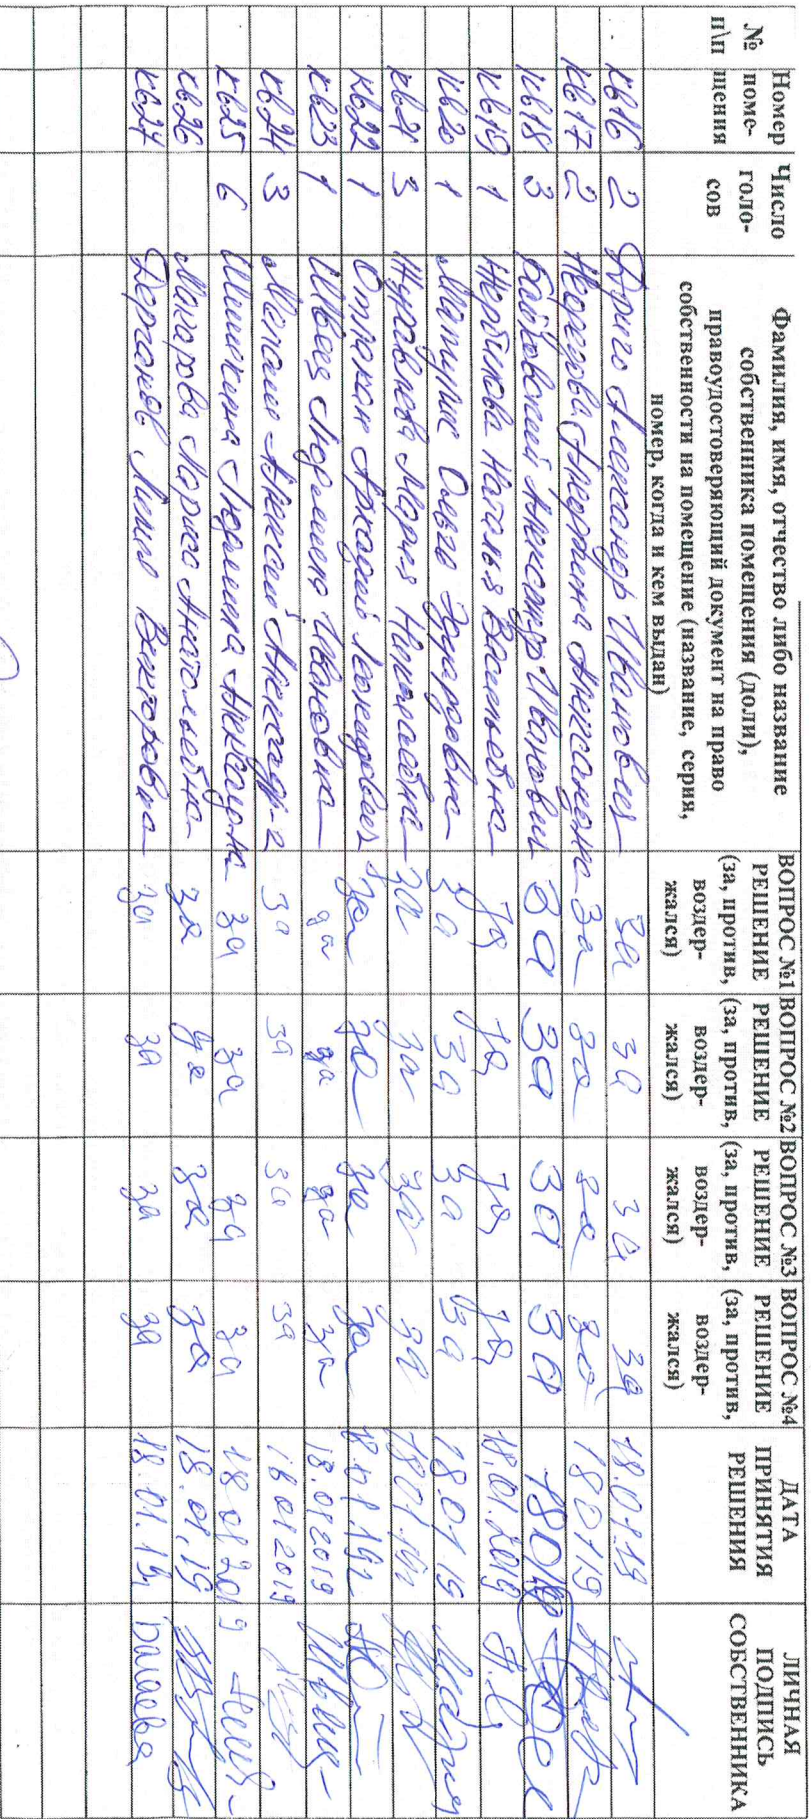 № п\п Номер поме-щения Число голо-сов Фамилия, имя, отчество либо название собственника помещения (доли), правоудостоверяющий документ на право собственности на помещение (название, серия, номер, когда и кем выдан) ВОПРОС №1 РЕШЕНИЕ (за, против, воздер-жался) ВОПРОС №2 РЕШЕНИЕ (за, против, воздер-жался) ВОПРОС №3 РЕШЕНИЕ (за, против, воздер-жался) ВОПРОС №4 РЕШЕНИЕ (за, против, воздер-жался) ДАТА ПРИНЯТИЯ РЕШЕНИЯ ЛИЧНАЯ ПОДПИСЬ СОБСТВЕННИКА
кв16 2 Александр Иванович за за за за 18.01.19
кв17 2 за за за за 18 01 19
кв18 3 Иванович за за за за
кв19 1 Наталья Васильевна за за за за 18.01.2019
кв20 1 Ольга Эдуардовна за за за за 18.01 19
кв21 3 Журавлева Мария Николаевна за за за за 18 01 19
кв22 1 Аркадий Леонидович за за за за 18.01.19
кв23 1 Швец Людмила Ивановна за за за за 18.01 2019
кв24 3 Алексей за за за за 18 01 2019
кв25 6 Шишкина Людмила за за за за 18 01 2019
кв26 Макарова Лариса Анатольевна за за за за 18.01.19
кв27 Викторовна за за за за 18.01.19